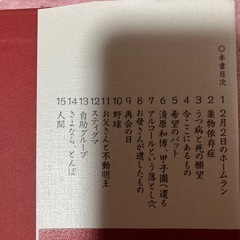 ◎本書目次
1 2月2日のホームラン
2 薬物依存症
3 うつ病と死の願望
4 今ここにあるもの
5 希望のバット
6 清原和博、甲子園へ還る
7 アルコールという落とし穴
8 お母さんが遺したもの
9 再会の日
10 野球
11 お父さんと不動明王
12 スティグマ
13 自助グループ
14 さよなら、とんぼ
15 人間